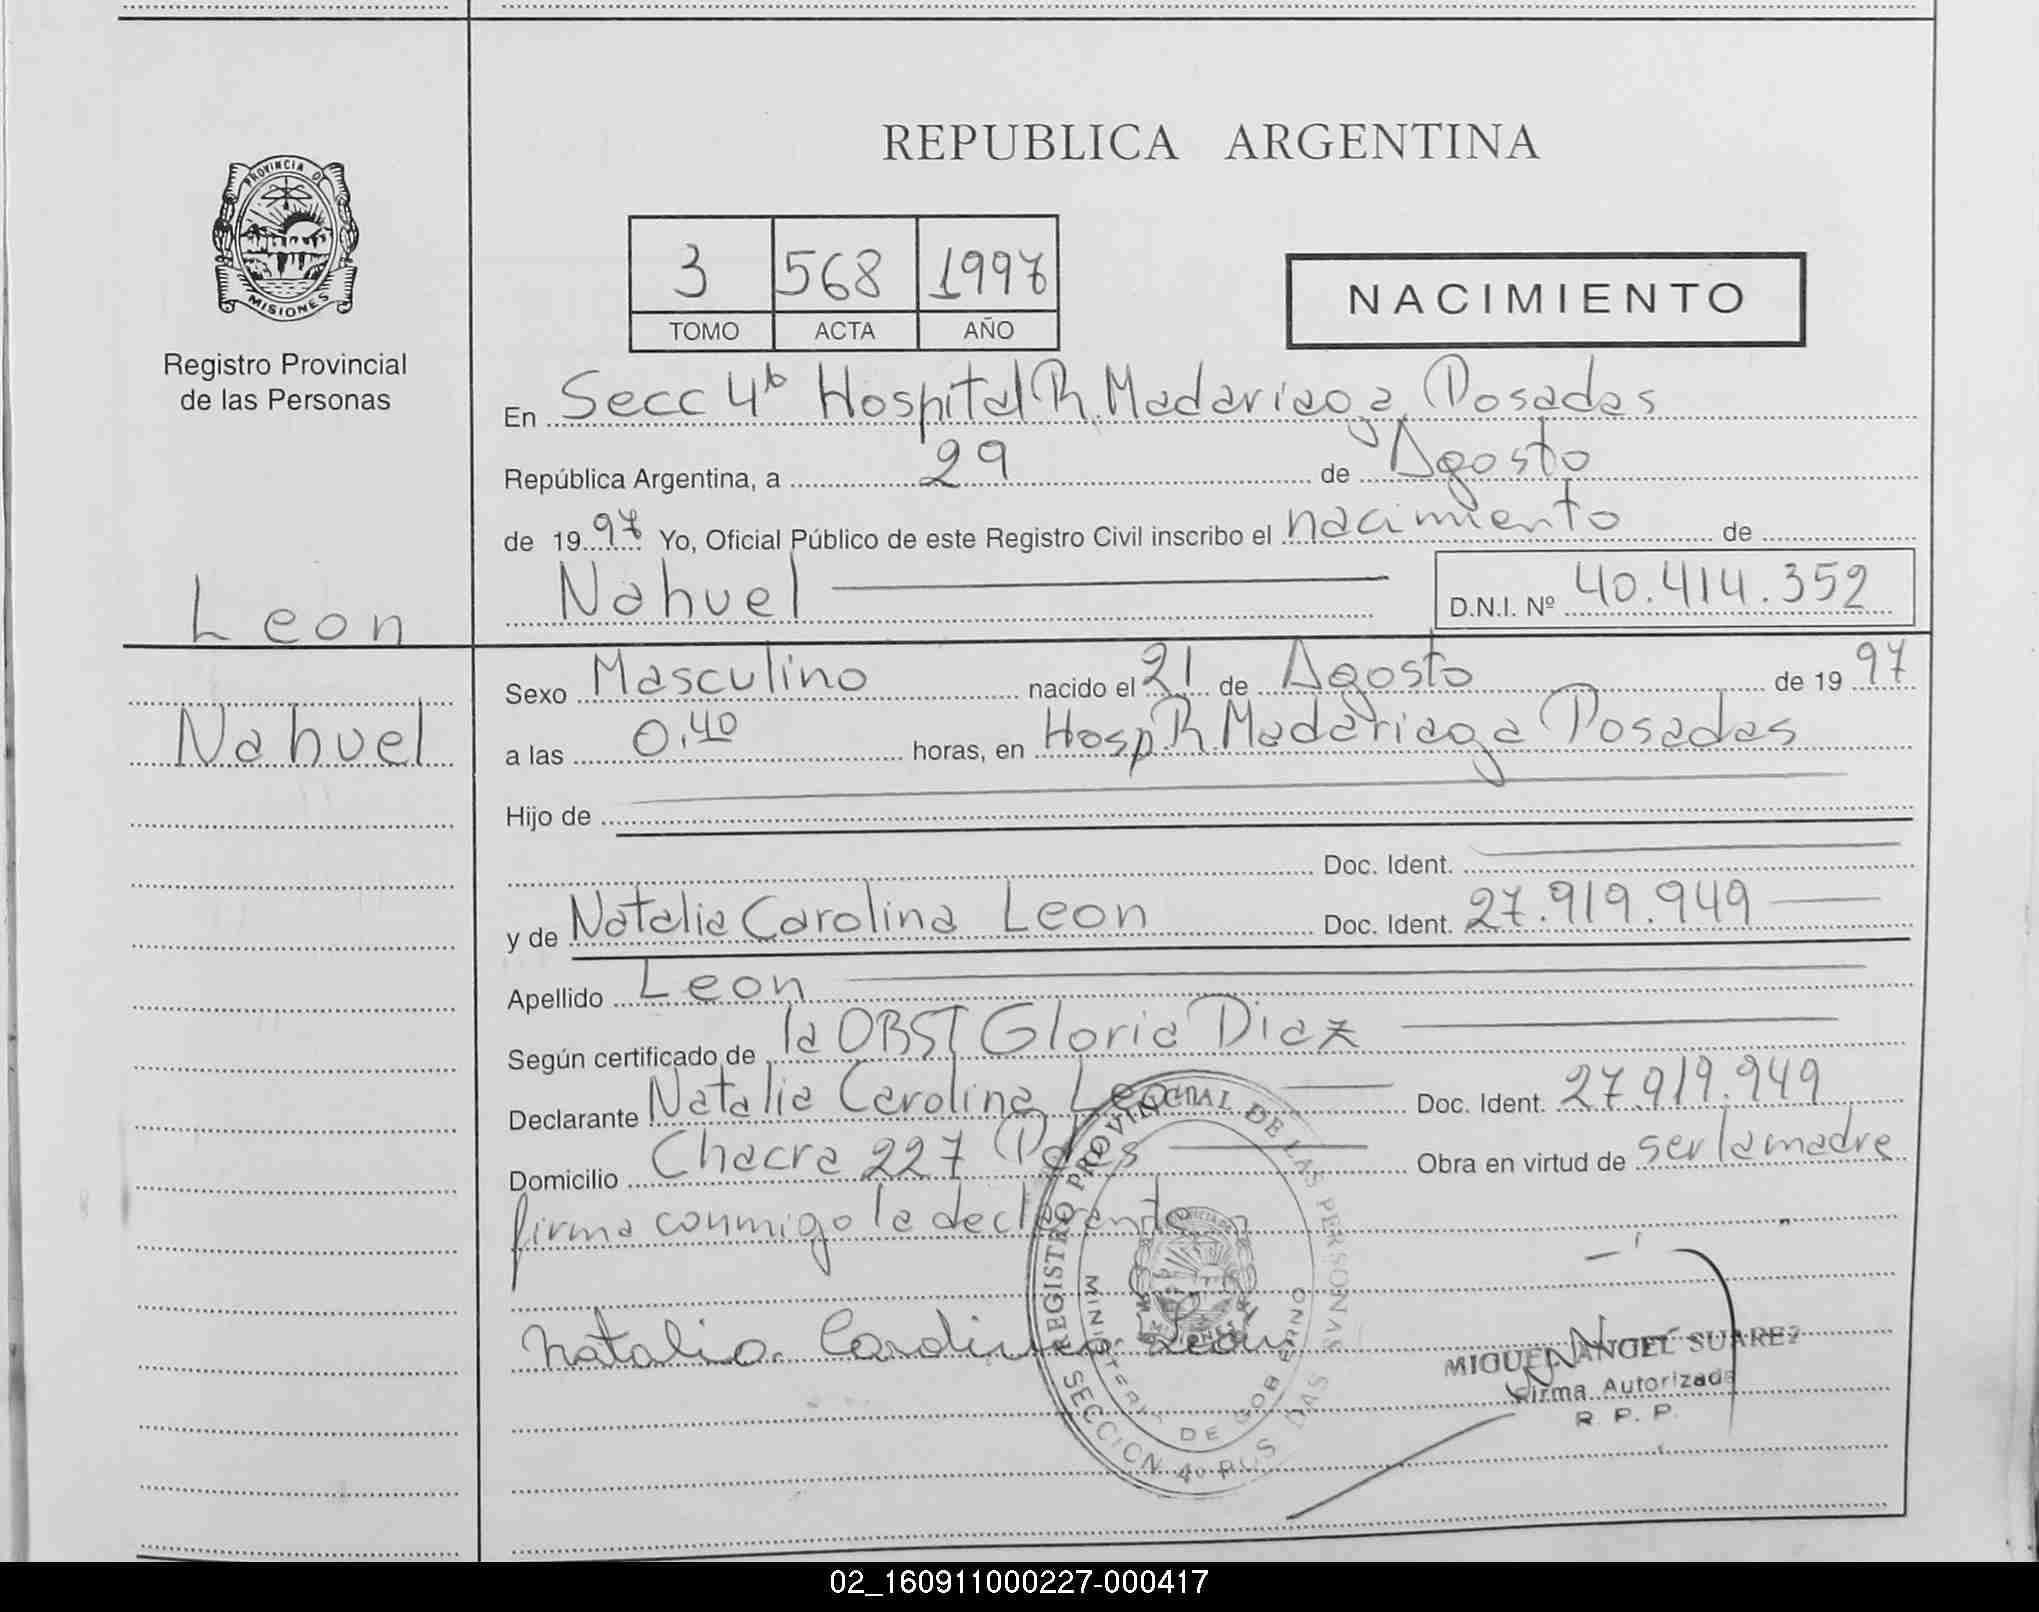 REPUBLICA ARGENTINA
PROVINCIA D
MISIONES
Registro Provincial
de las Personas
3 568 1997
TOMO ACTA AÑO
NACIMIENTO
En Secc 4ª Hospital R. Madariaga Posadas
República Argentina, a 29 de Agosto
de 1997 Yo, Oficial Público de este Registro Civil inscribo el nacimiento de
Nahuel D.N.I. Nº 40.414.352
Leon
Nahuel
Sexo Masculino nacido el 21 de Agosto de 1997
a las 0,40 horas, en Hosp. R. Madariaga Posadas
Hijo de
Doc. Ident.
y de Natalia Carolina Leon Doc. Ident. 27.919.949
Apellido Leon
Según certificado de la OBST Gloria Diaz
Declarante Natalia Carolina Leon Doc. Ident. 27.919.949
Domicilio Chacra 227 Pdas Obra en virtud de ser la madre
firma conmigo la declarante
Natalia Carolina Leon
REGISTRO PROVINCIAL DE LAS PERSONAS
MINISTERIO DE GOBIERNO
SECCION 4º
MIGUEL ANGEL SUAREZ
Firma Autorizada
R. P. P.
02_160911000227-000417